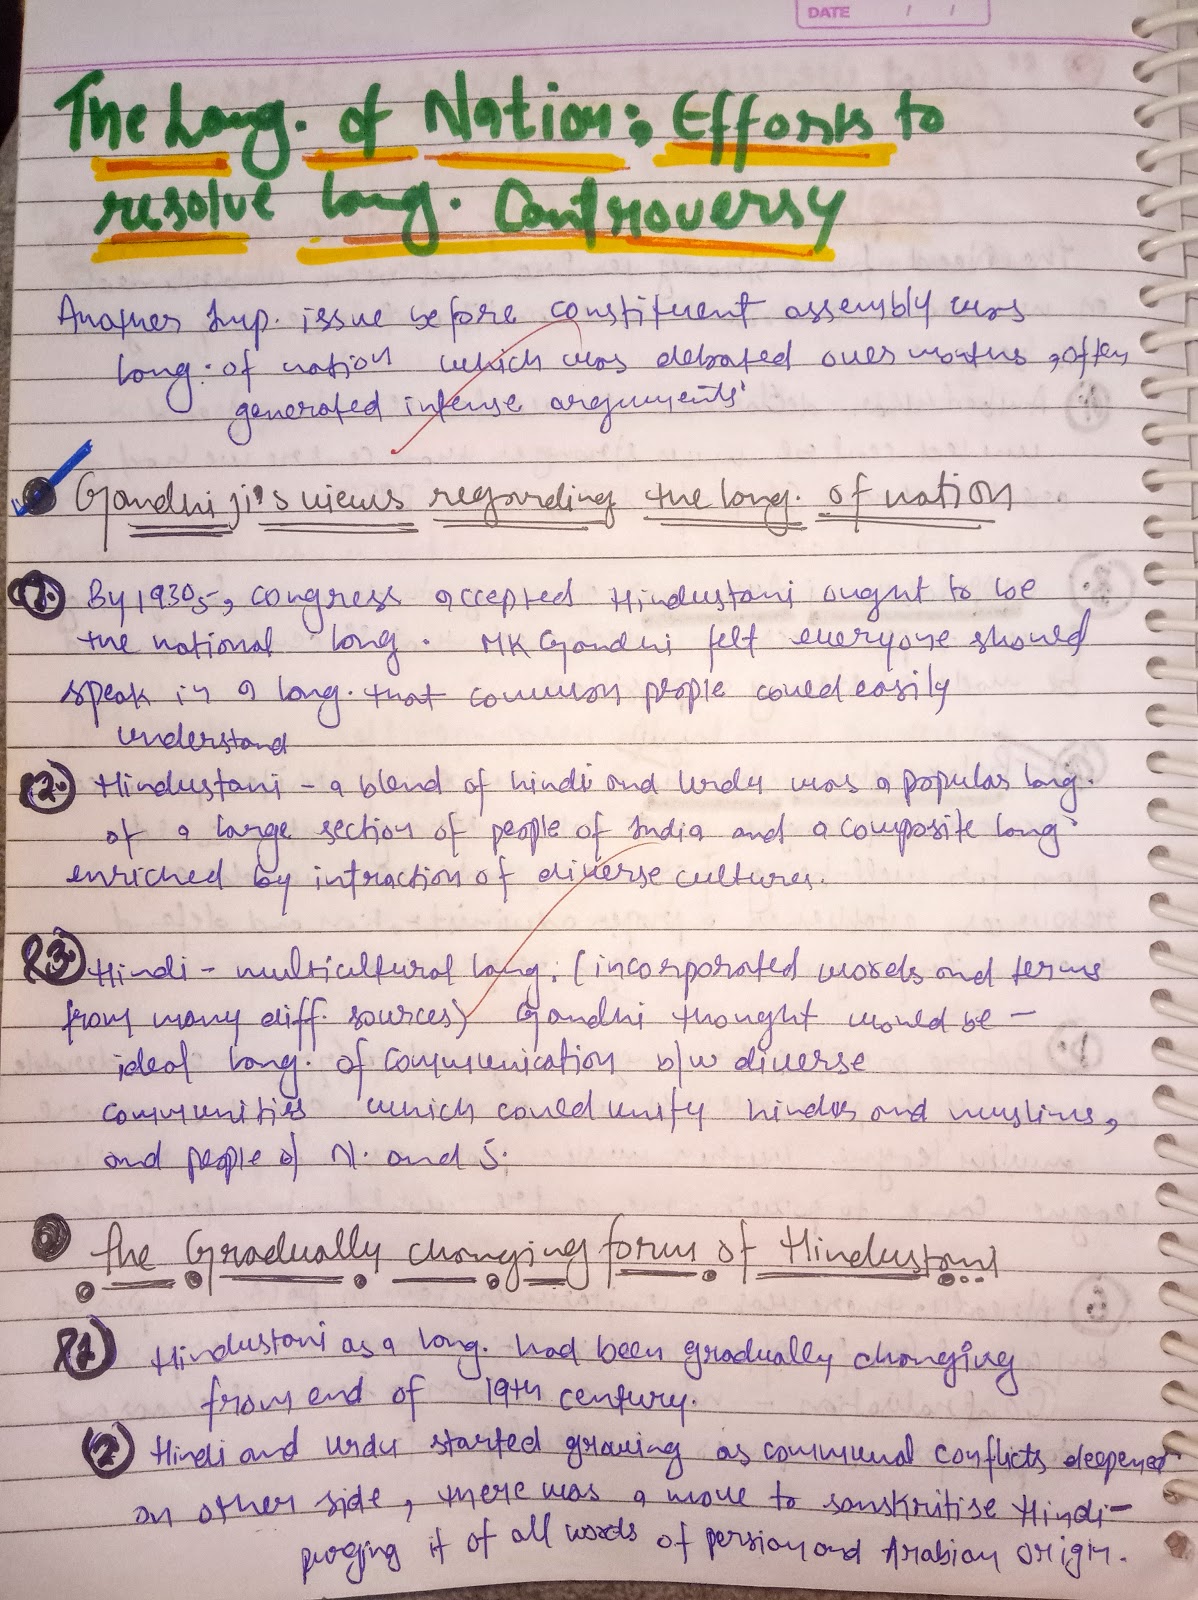 DATE / /
The Lang. of Nation; Efforts to
resolve lang. Controversy
Another Imp. issue before constituent assembly was
lang. of nation which was debated over months, often
generated intense arguments'
Gandhi ji's views regarding the lang. of nation
1. By 1930s, congress accepted Hindustani ought to be
the national lang. MK Gandhi felt everyone should
speak in a lang. that common people could easily
understand
2. Hindustani - a blend of hindi and Urdu was a popular lang.
of a large section of people of India and a composite lang.
enriched by intraction of diverse cultures.
3. Hindi - multicultural lang. (incorporated words and terms
from many diff. sources) Gandhi thought would be -
ideal lang. of communication b/w diverse
communities which could unify hindus and muslims,
and people of N. and S.
The Gradually changing form of Hindustani
1 Hindustani as a lang. had been gradually changing
from end of 19th century.
2 Hindi and Urdu started growing as communal conflicts deepened
on other side, there was a move to sanskritise Hindi-
purging it of all words of persian and Arabian origin.